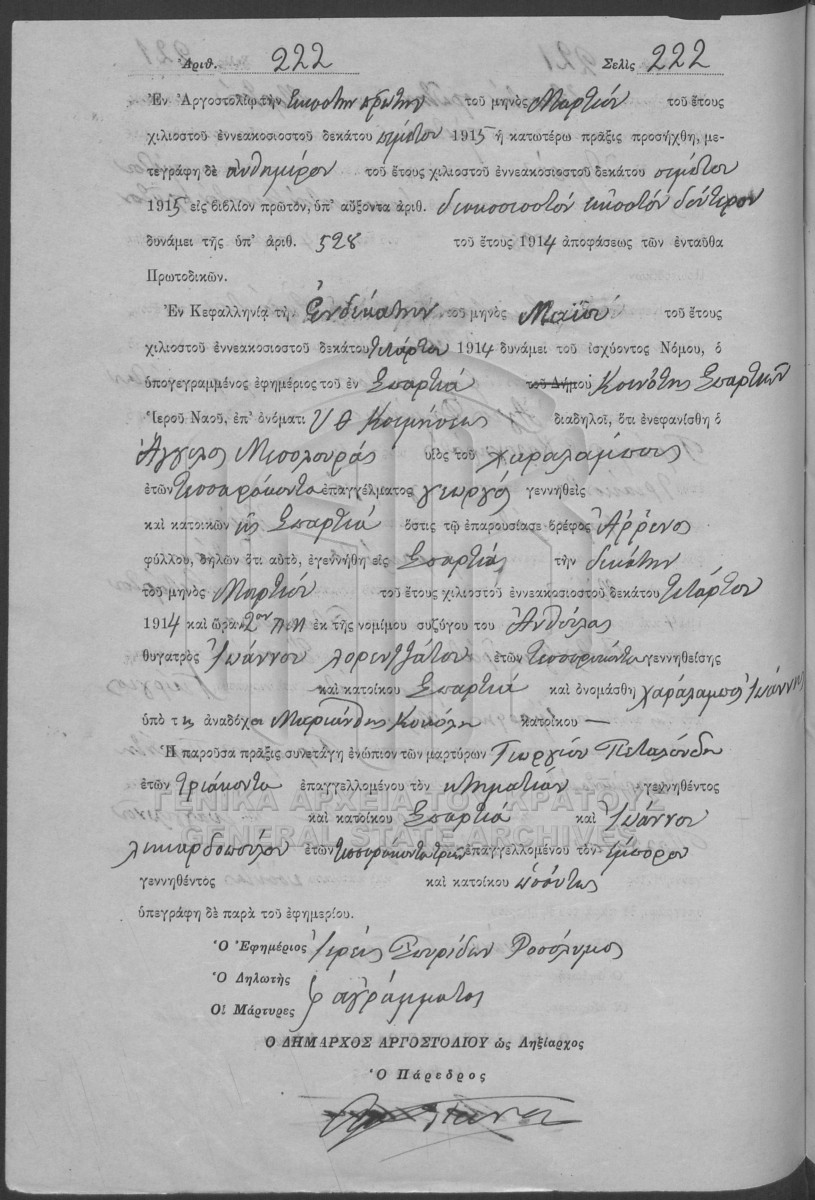 Ἀριθ. 222 Σελὶς 222
Ἐν Ἀργοστολίῳ τὴν εἰκοστὴν πρώτην τοῦ μηνὸς Μαρτίου τοῦ ἔτους
χιλιοστοῦ ἐννεακοσιοστοῦ δεκάτου πέμπτου 1915 ἡ κατωτέρω πρᾶξις προσήχθη, με-
τεγράφη δὲ αὐθημερὸν τοῦ ἔτους χιλιοστοῦ ἐννεακοσιοστοῦ δεκάτου πέμπτου
1915 εἰς βιβλίον πρῶτον, ὑπ' αὔξοντα ἀριθ. διακοσιοστόν εἰκοστόν δεύτερον
δυνάμει τῆς ὑπ' ἀριθ. 528 τοῦ ἔτους 1914 ἀποφάσεως τῶν ἐνταῦθα
Πρωτοδικῶν.
Ἐν Κεφαλληνίᾳ τὴν Ἑνδεκάτην τοῦ μηνὸς Μαΐου τοῦ ἔτους
χιλιοστοῦ ἐννεακοσιοστοῦ δεκάτου τετάρτου 1914 δυνάμει τοῦ ἰσχύοντος Νόμου, ὁ
ὑπογεγραμμένος ἐφημέριος τοῦ ἐν Σπαρτιά τοῦ Δήμου Κοινότης Σπαρτιῶν
Ἱεροῦ Ναοῦ, ἐπ' ὀνόματι Υ Θ Κοιμήσεως διαδηλοῖ, ὅτι ἐνεφανίσθη ὁ
Ἄγγελος Μεσολουράς υἱὸς τοῦ Χαραλάμπους
ἐτῶν τεσσαράκοντα ἐπαγγέλματος γεωργός γεννηθεὶς
καὶ κατοικῶν εἰς Σπαρτιά ὅστις τῷ ἐπαρουσίασε βρέφος Ἄρρενος
φύλλου, δηλῶν ὅτι αὐτὸ, ἐγεννήθη εἰς Σπαρτιά τὴν δεκάτην
τοῦ μηνὸς Μαρτίου τοῦ ἔτους χιλιοστοῦ ἐννεακοσιοστοῦ δεκάτου τετάρτου
1914 καὶ ὥραν 2αν π.μ ἐκ τῆς νομίμου συζύγου του Ἀνθούλας
θυγατρὸς Ἰωάννου Λορεντζάτου ἐτῶν τεσσαράκοντα γεννηθείσης
καὶ κατοίκου Σπαρτιά καὶ ὀνομάσθη Χαράλαμπος Ἰωάννης
ὑπὸ τῆς ἀναδόχου Μαριάνθης κατοίκου —
Ἡ παροῦσα πρᾶξις συνετάγη ἐνώπιον τῶν μαρτύρων Γεωργίου Πεταλούδη
ἐτῶν τριάκοντα ἐπαγγελλομένου τὸν κτηματίαν γεννηθέντος
καὶ κατοίκου Σπαρτιά καὶ Ἰωάννου
Λικιαρδοπούλου ἐτῶν τεσσαράκοντα τριῶν ἐπαγγελλομένου τὸν ἔμπορον
γεννηθέντος καὶ κατοίκου ὡσαύτως
ὑπεγράφη δὲ παρὰ τοῦ ἐφημερίου.
Ὁ Ἐφημέριος Ἱερεὺς Σπυρίδων Ροσόλυμος
Ὁ Δηλωτὴς
Οἱ Μάρτυρες ἀγράμματος
Ο ΔΗΜΑΡΧΟΣ ΑΡΓΟΣΤΟΛΙΟΥ ὡς Ληξίαρχος
Ὁ Πάρεδρος
ΓΕΝΙΚΑ ΑΡΧΕΙΑ ΤΟΥ ΚΡΑΤΟΥΣ
GENERAL STATE ARCHIVES